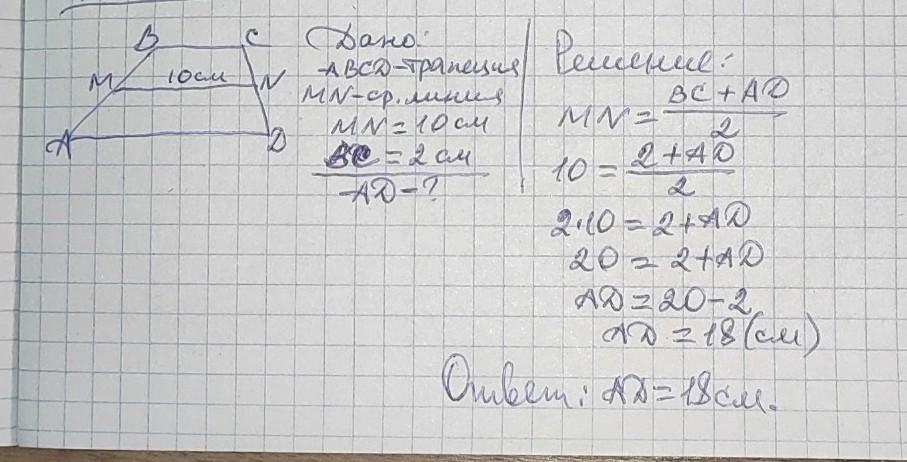 B C
10см
M N
A D
Дано:
ABCD-трапеция
MN-ср. линия
MN = 10 см
BC = 2 см
AD - ?
Решение:
MN = \frac{BC + AD}{2}
10 = \frac{2 + AD}{2}
2·10 = 2 + AD
20 = 2 + AD
AD = 20 - 2
AD = 18 (см)
Ответ: AD = 18 см.